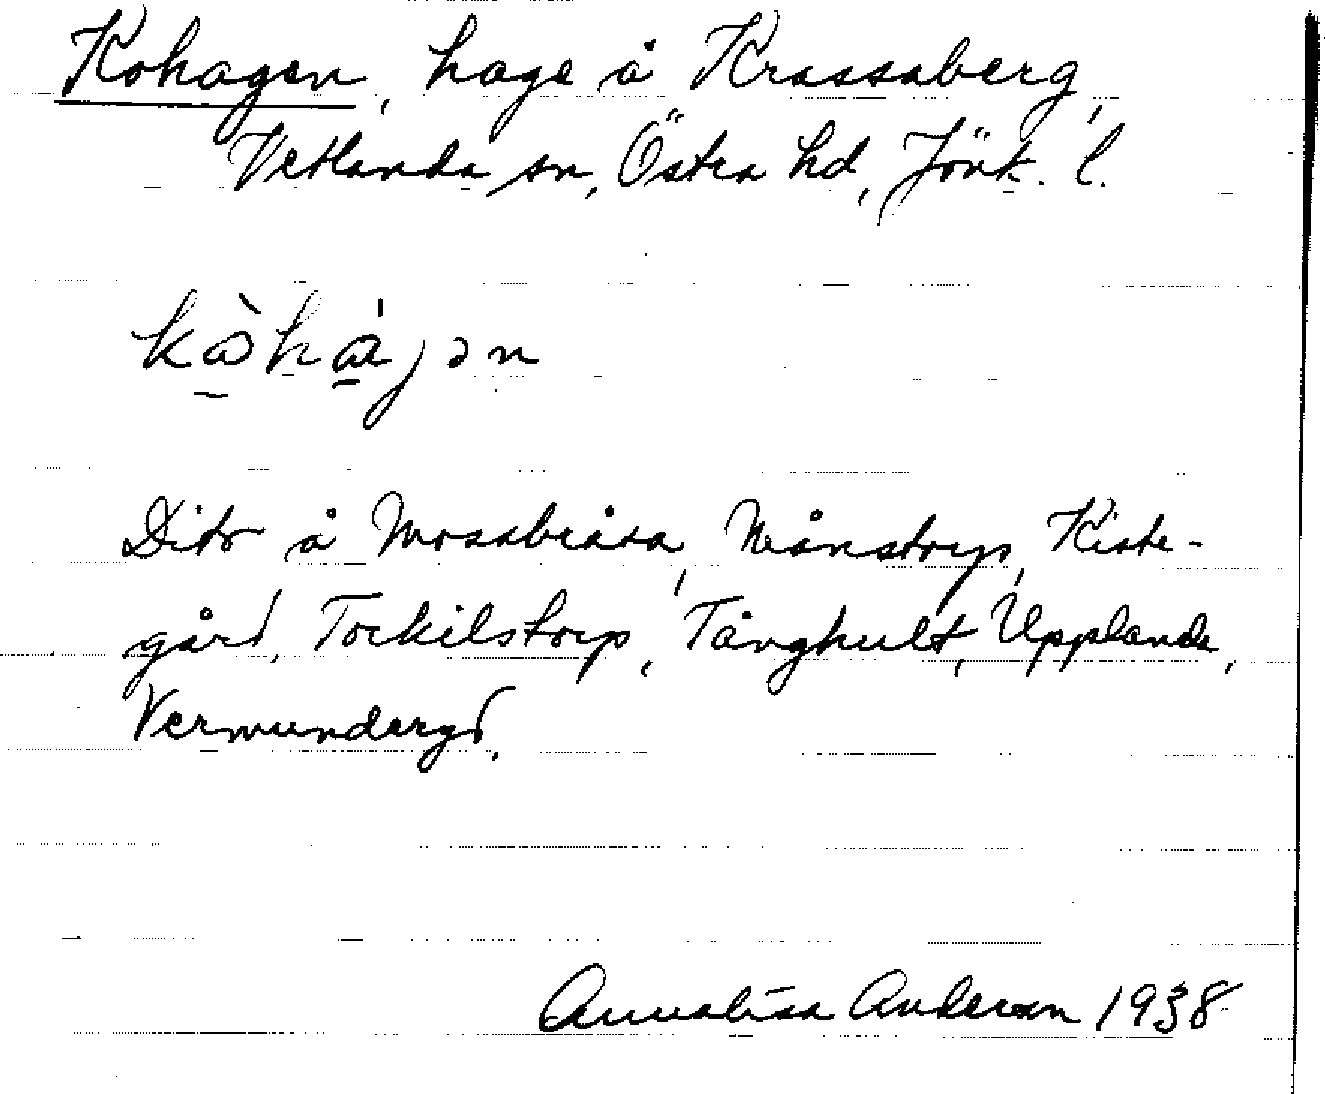 Kohagen, hage å Krassaberg,
Vetlanda sn, Östra hd, Jönk. l.
kòhájən
Dito å Mossebråsa, Månstorp, Kiste-
gård, Torkilstorp, Tånghult, Upplanda,
Vermundergd.
Annalisa Anderson 1938